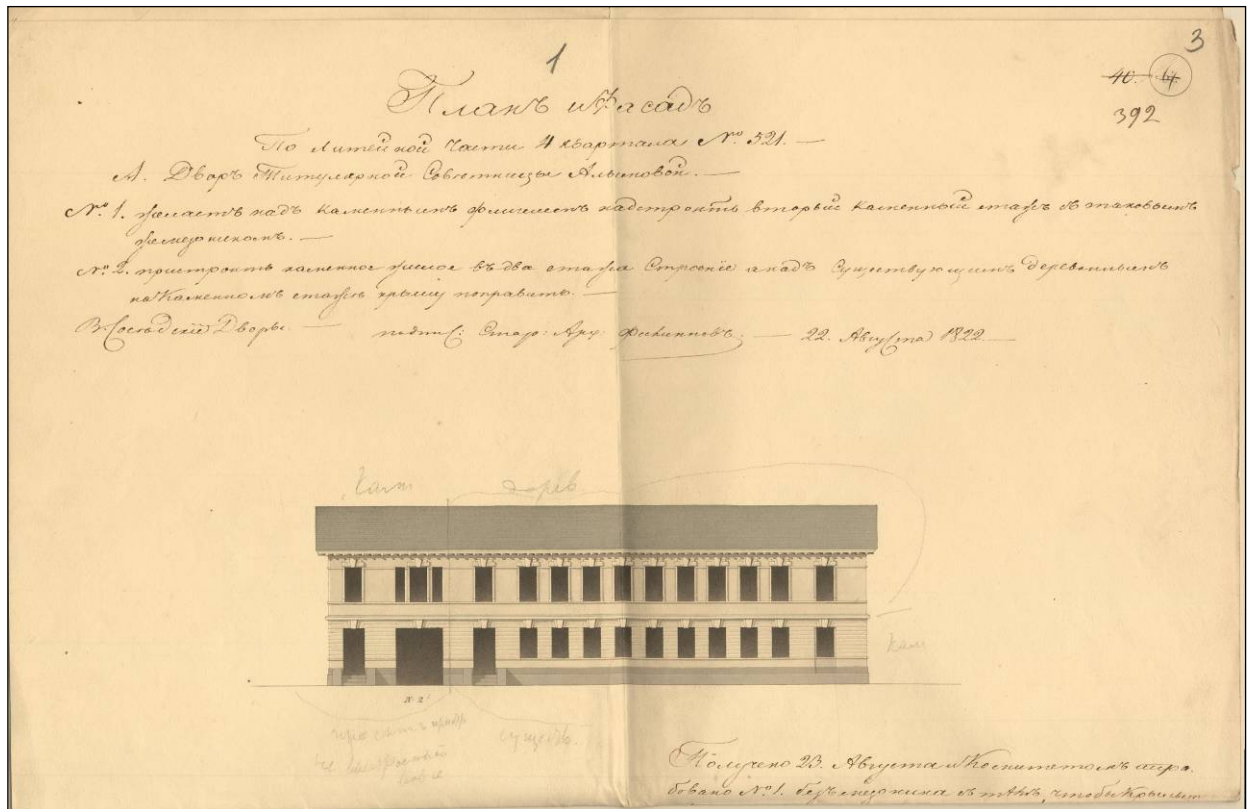 1
3
40. 14
392
Планъ и Фасадъ
По Литейной Части 4 квартала № 521. —
А. Дворъ Титулярной Советницы Алымовой. —
№ 1. желаетъ надъ каменнымъ флигелемъ надстроить вторый каменный этажъ съ таковымъ
же
№ 2. пристроить каменное жилое въ два этажа Строеніе а надъ Существующимъ деревяннымъ
на Каменномъ этаже крышу поправить. —
В. Соседскіе Дворы. — подпис: Стар: Арх: — 22. Августа 1822. —
Камн
дерев
Кам
№ 2
существ.
Получено 23. Августа и Комитетомъ апро-
бовано № 1. безъ мезонина съ тѣмъ, чтобы